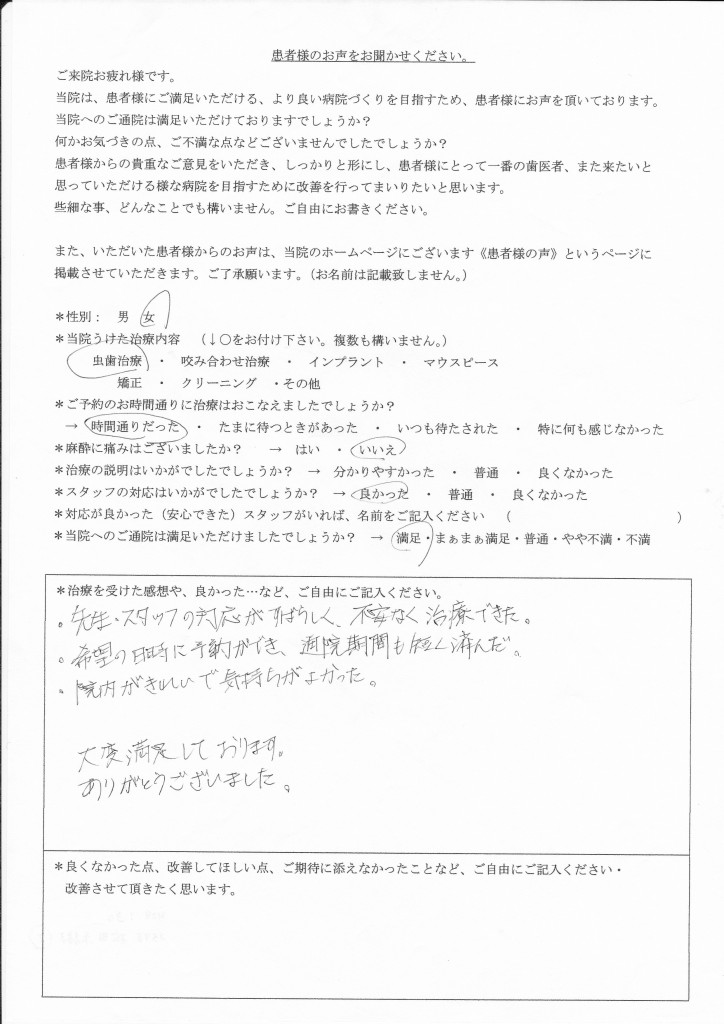 患者様のお声をお聞かせください。
ご来院お疲れ様です。
当院は、患者様にご満足いただける、より良い病院づくりを目指すため、患者様にお声を頂いております。
当院へのご通院は満足いただけておりますでしょうか？
何かお気づきの点、ご不満な点などございませんでしたでしょうか？
患者様からの貴重なご意見をいただき、しっかりと形にし、患者様にとって一番の歯医者、また来たいと
思っていただける様な病院を目指すために改善を行ってまいりたいと思います。
些細な事、どんなことでも構いません。ご自由にお書きください。
また、いただいた患者様からのお声は、当院のホームページにございます《患者様の声》というページに
掲載させていただきます。ご了承願います。（お名前は記載致しません。）
＊性別： 男 女
＊当院うけた治療内容 （↓○をお付け下さい。複数も構いません。）
虫歯治療 ・ 咬み合わせ治療 ・ インプラント ・ マウスピース
矯正 ・ クリーニング ・その他
＊ご予約のお時間通りに治療はおこなえましたでしょうか？
→ 時間通りだった ・ たまに待つときがあった ・ いつも待たされた ・ 特に何も感じなかった
＊麻酔に痛みはございましたか？ → はい ・ いいえ
＊治療の説明はいかがでしたでしょうか？ → 分かりやすかった ・ 普通 ・ 良くなかった
＊スタッフの対応はいかがでしたでしょうか？ → 良かった ・ 普通 ・ 良くなかった
＊対応が良かった（安心できた）スタッフがいれば、名前をご記入ください （ ）
＊当院へのご通院は満足いただけましたでしょうか？ → 満足・まぁまぁ満足・普通・やや不満・不満
＊治療を受けた感想や、良かった…など、ご自由にご記入ください。
。先生・スタッフの対応がすばらしく、不安なく治療できた。
・希望の日時に予約ができ、通院期間も短く済んだ。
・院内がきれいで気持ちがよかった。
大変満足しております。
ありがとうございました。
＊良くなかった点、改善してほしい点、ご期待に添えなかったことなど、ご自由にご記入ください・
改善させて頂きたく思います。